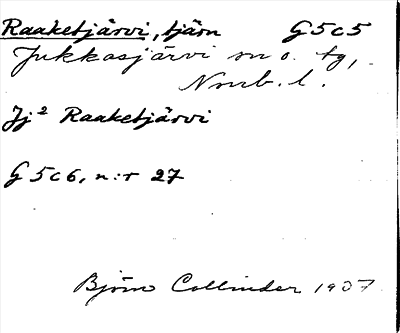 Raaketjärvi, tjärn G5c5
Jukkasjärvi sn o. tg,
Nmrb. l.
Jj² Raaketjärvi
G5c6, n:r 27
Björn Collinder 1937